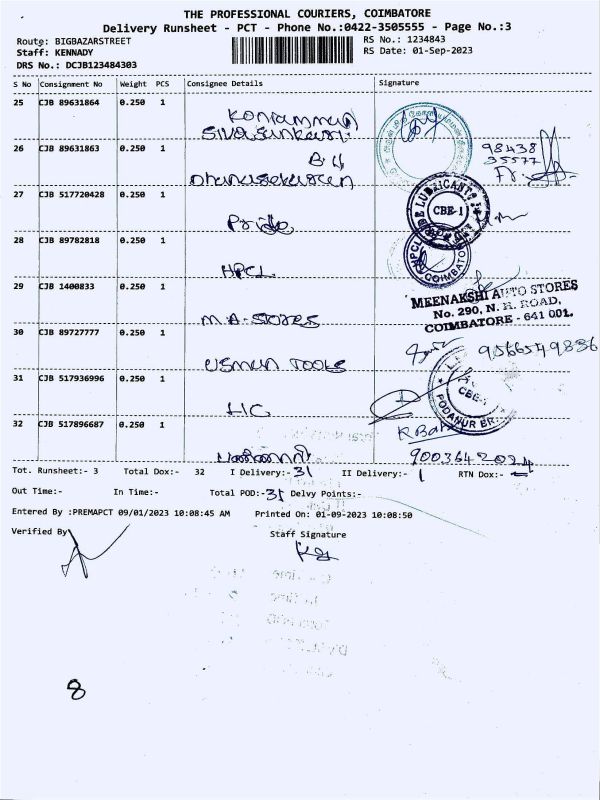 THE PROFESSIONAL COURIERS, COIMBATORE
Delivery Runsheet - PCT - Phone No.:0422-3505555 - Page No.:3
Route: BIGBAZARSTREET
RS No.: 1234843
Staff: KENNADY
RS Date: 01-Sep-2023
DRS No.: DCJB123484303
S No Consignment No Weight PCS Consignee Details Signature
25 CJB 89631864 0.250 1
Koniamman
Sivasankari
26 CJB 89631863 0.250 1
98438
35577
Dhanasekaran
27 CJB 517720428 0.250 1
LUBRICANTS
CBE-1
Pride
28 CJB 89782818 0.250 1
HPCL
COIMBATORE
HPCL
29 CJB 1400833 0.250 1
MEENAKSHI AUTO STORES
No. 290, N. H. ROAD,
COIMBATORE - 641 001.
M.A-STORES
30 CJB 89727777 0.250 1
9566549836
USMAN TOOLS
31 CJB 517936996 0.250 1
CBE-
PODANUR BR.
LIC
32 CJB 517896687 0.250 1
9003642024
Tot. Runsheet:- 3 Total Dox:- 32 I Delivery:-31 II Delivery:- 1 RTN Dox:- —
Out Time:- In Time:- Total POD:-31 Delvy Points:-
Entered By :PREMAPCT 09/01/2023 10:08:45 AM Printed On: 01-09-2023 10:08:50
Verified By
Staff Signature
8